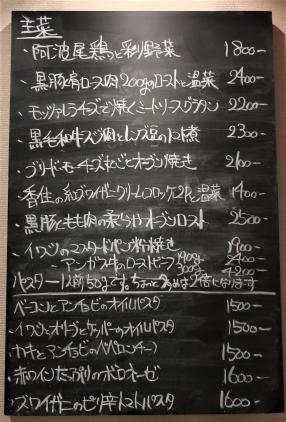 主菜
・阿波尾鶏と彩り野菜 1800-
・黒豚肩ロース肉200gのローストと温菜 2400-
・モッツァレラチーズで焼くミートソースグラタン 2200-
・黒毛和牛スジ肉とレンズ豆のトマト煮 2300-
・ブリードモーチーズ丸ごとオーブン焼き 2100-
・香住の紅ズワイガニクリームコロッケ2Pと温菜 1400-
・黒豚ともも肉の柔らかオーブンロースト 2500-
・イワシのマスタードパン粉焼き 1900-
・アンガス牛のローストビーフ 190g- 2400-
300g- 4200-
パスタ 1人前50gです。ちょっと多めは2倍になります
ベーコンとアンチョビのオイルパスタ 1500-
イワシとオリーブとケッパーのオイルパスタ 1500-
カキとアンチョビのペペロンチーノ 1500-
赤ワインたっぷりのボロネーゼ 1600-
ズワイガニのピリ辛トマトパスタ 1600-